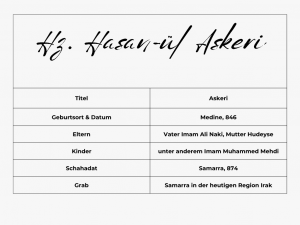 Hz. Hasan-ül Askeri
Titel Askeri
Geburtsort & Datum Medine, 846
Eltern Vater Imam Ali Naki, Mutter Hudeyse
Kinder unter anderem Imam Muhammed Mehdi
Schahadat Samarra, 874
Grab Samarra in der heutigen Region Irak